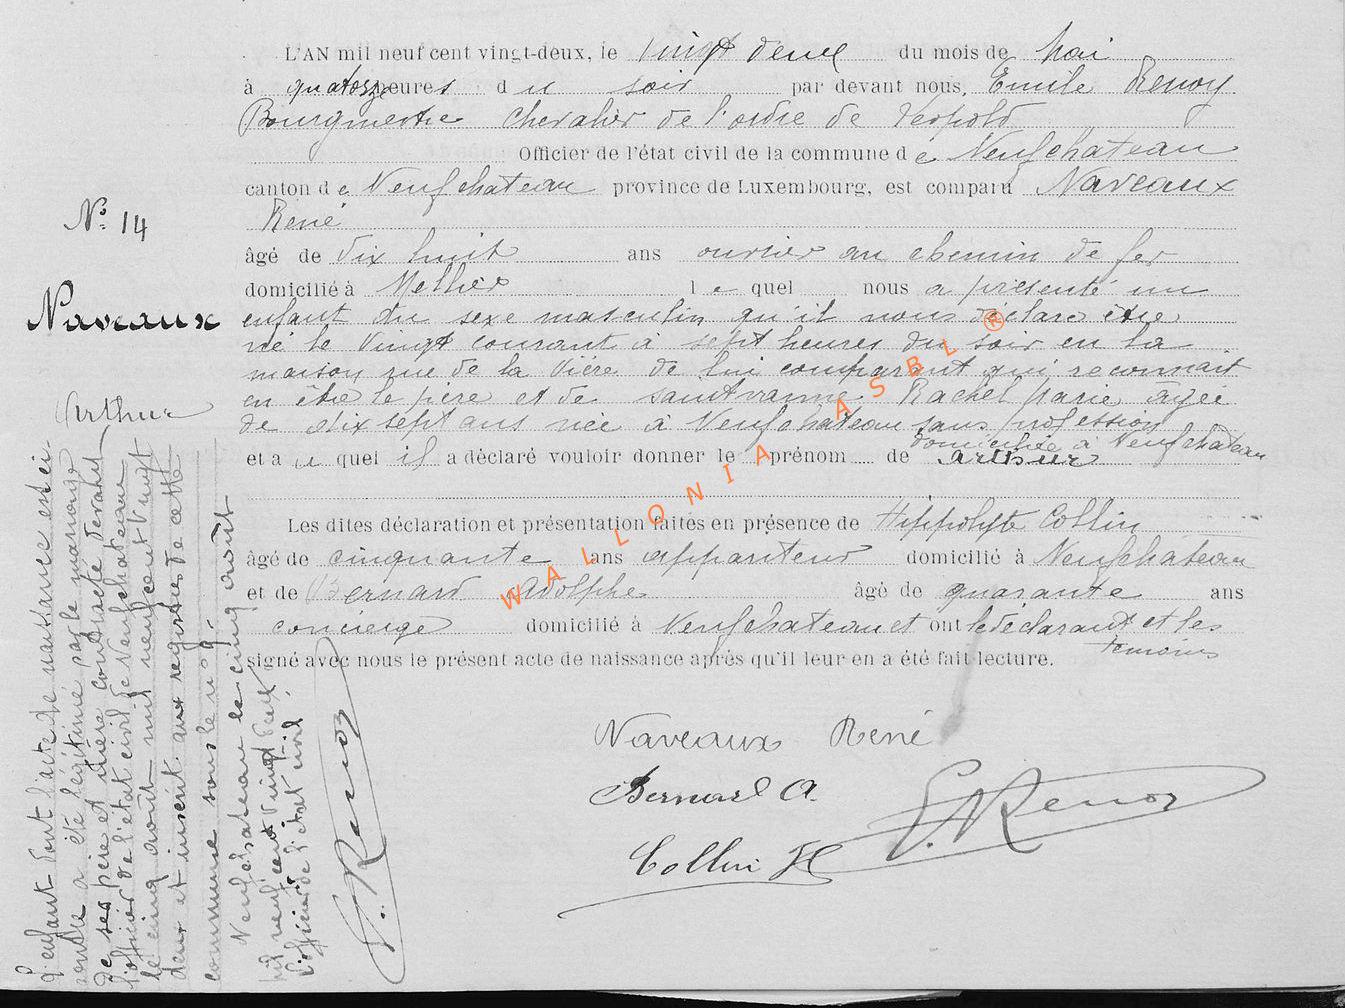 L'AN mil neuf cent vingt-deux, le vingt deux du mois de Mai
à quatorze heures du soir par devant nous, Emile Renoy
Bourgmestre Chevalier de l'ordre de Léopold
Officier de l'état civil de la commune de Neufchateau
canton de Neufchateau province de Luxembourg, est comparu Naveaux
René
âgé de dix huit ans ouvrier au chemin de fer
domicilié à Mellier lequel nous a présenté un
enfant du sexe masculin qu'il nous déclare être
né le vingt courant à sept heures du soir en la
maison rue de la de lui comparant qui reconnait
en être le père et de Saintvanne Rachel Marie âgée
de dix sept ans née à Neufchateau sans profession
domiciliée à Neufchateau
et auquel il a déclaré vouloir donner le prénom de Arthur
Les dites déclaration et présentation faites en présence de Hippolyte Collin
âgé de cinquante ans appariteur domicilié à Neufchateau
et de Bernard Adolphe âgé de quarante ans
concierge domicilié à Neufchateau et ont le déclarant et les
témoins
signé avec nous le présent acte de naissance après qu'il leur en a été fait lecture.
Naveaux René
Bernard A.
E. Renoy
Collin H
N° 14
Naveaux
Arthur
L'enfant dont l'acte de naissance est ci-
contre a été légitimé par le mariage
de ses père et mère contracté devant
l'officier de l'état civil de Neufchateau
le cinq août mil neuf cent vingt
deux et inscrit aux registres de cette
commune sous le n° 9.
Neufchateau le cinq août
mil neuf cent vingt deux
L'officier de l'état civil
E. Renoy
WALLONIA ASBL ®